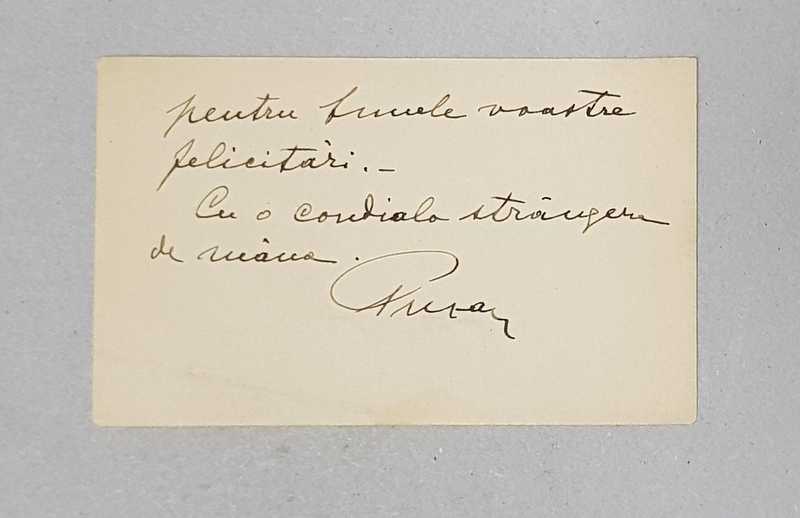 pentru bunele voastre
felicitări. _
Cu o condiala strângere
de mâna.